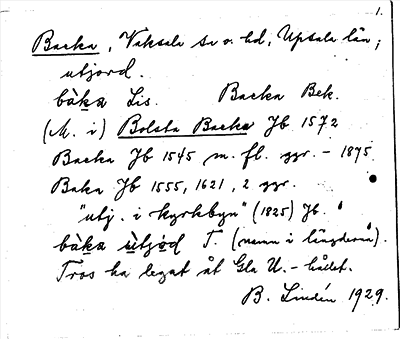 1.
Backa, Vaksala sn o. hd, Upsala län;
utjord.
bàka Lis. Backa Bek.
(M. i) Bolsta Backa Jb 1572
Backa Jb 1545 m. fl. ggr. - 1875
Baka Jb 1555, 1621, 2 ggr.
"utj. i kyrkbyn" (1825) Jb.
bàka ùtjod T. (namn i längderna).
Tros ha legat åt Gla U. - hållet.
B. Lindén 1929.